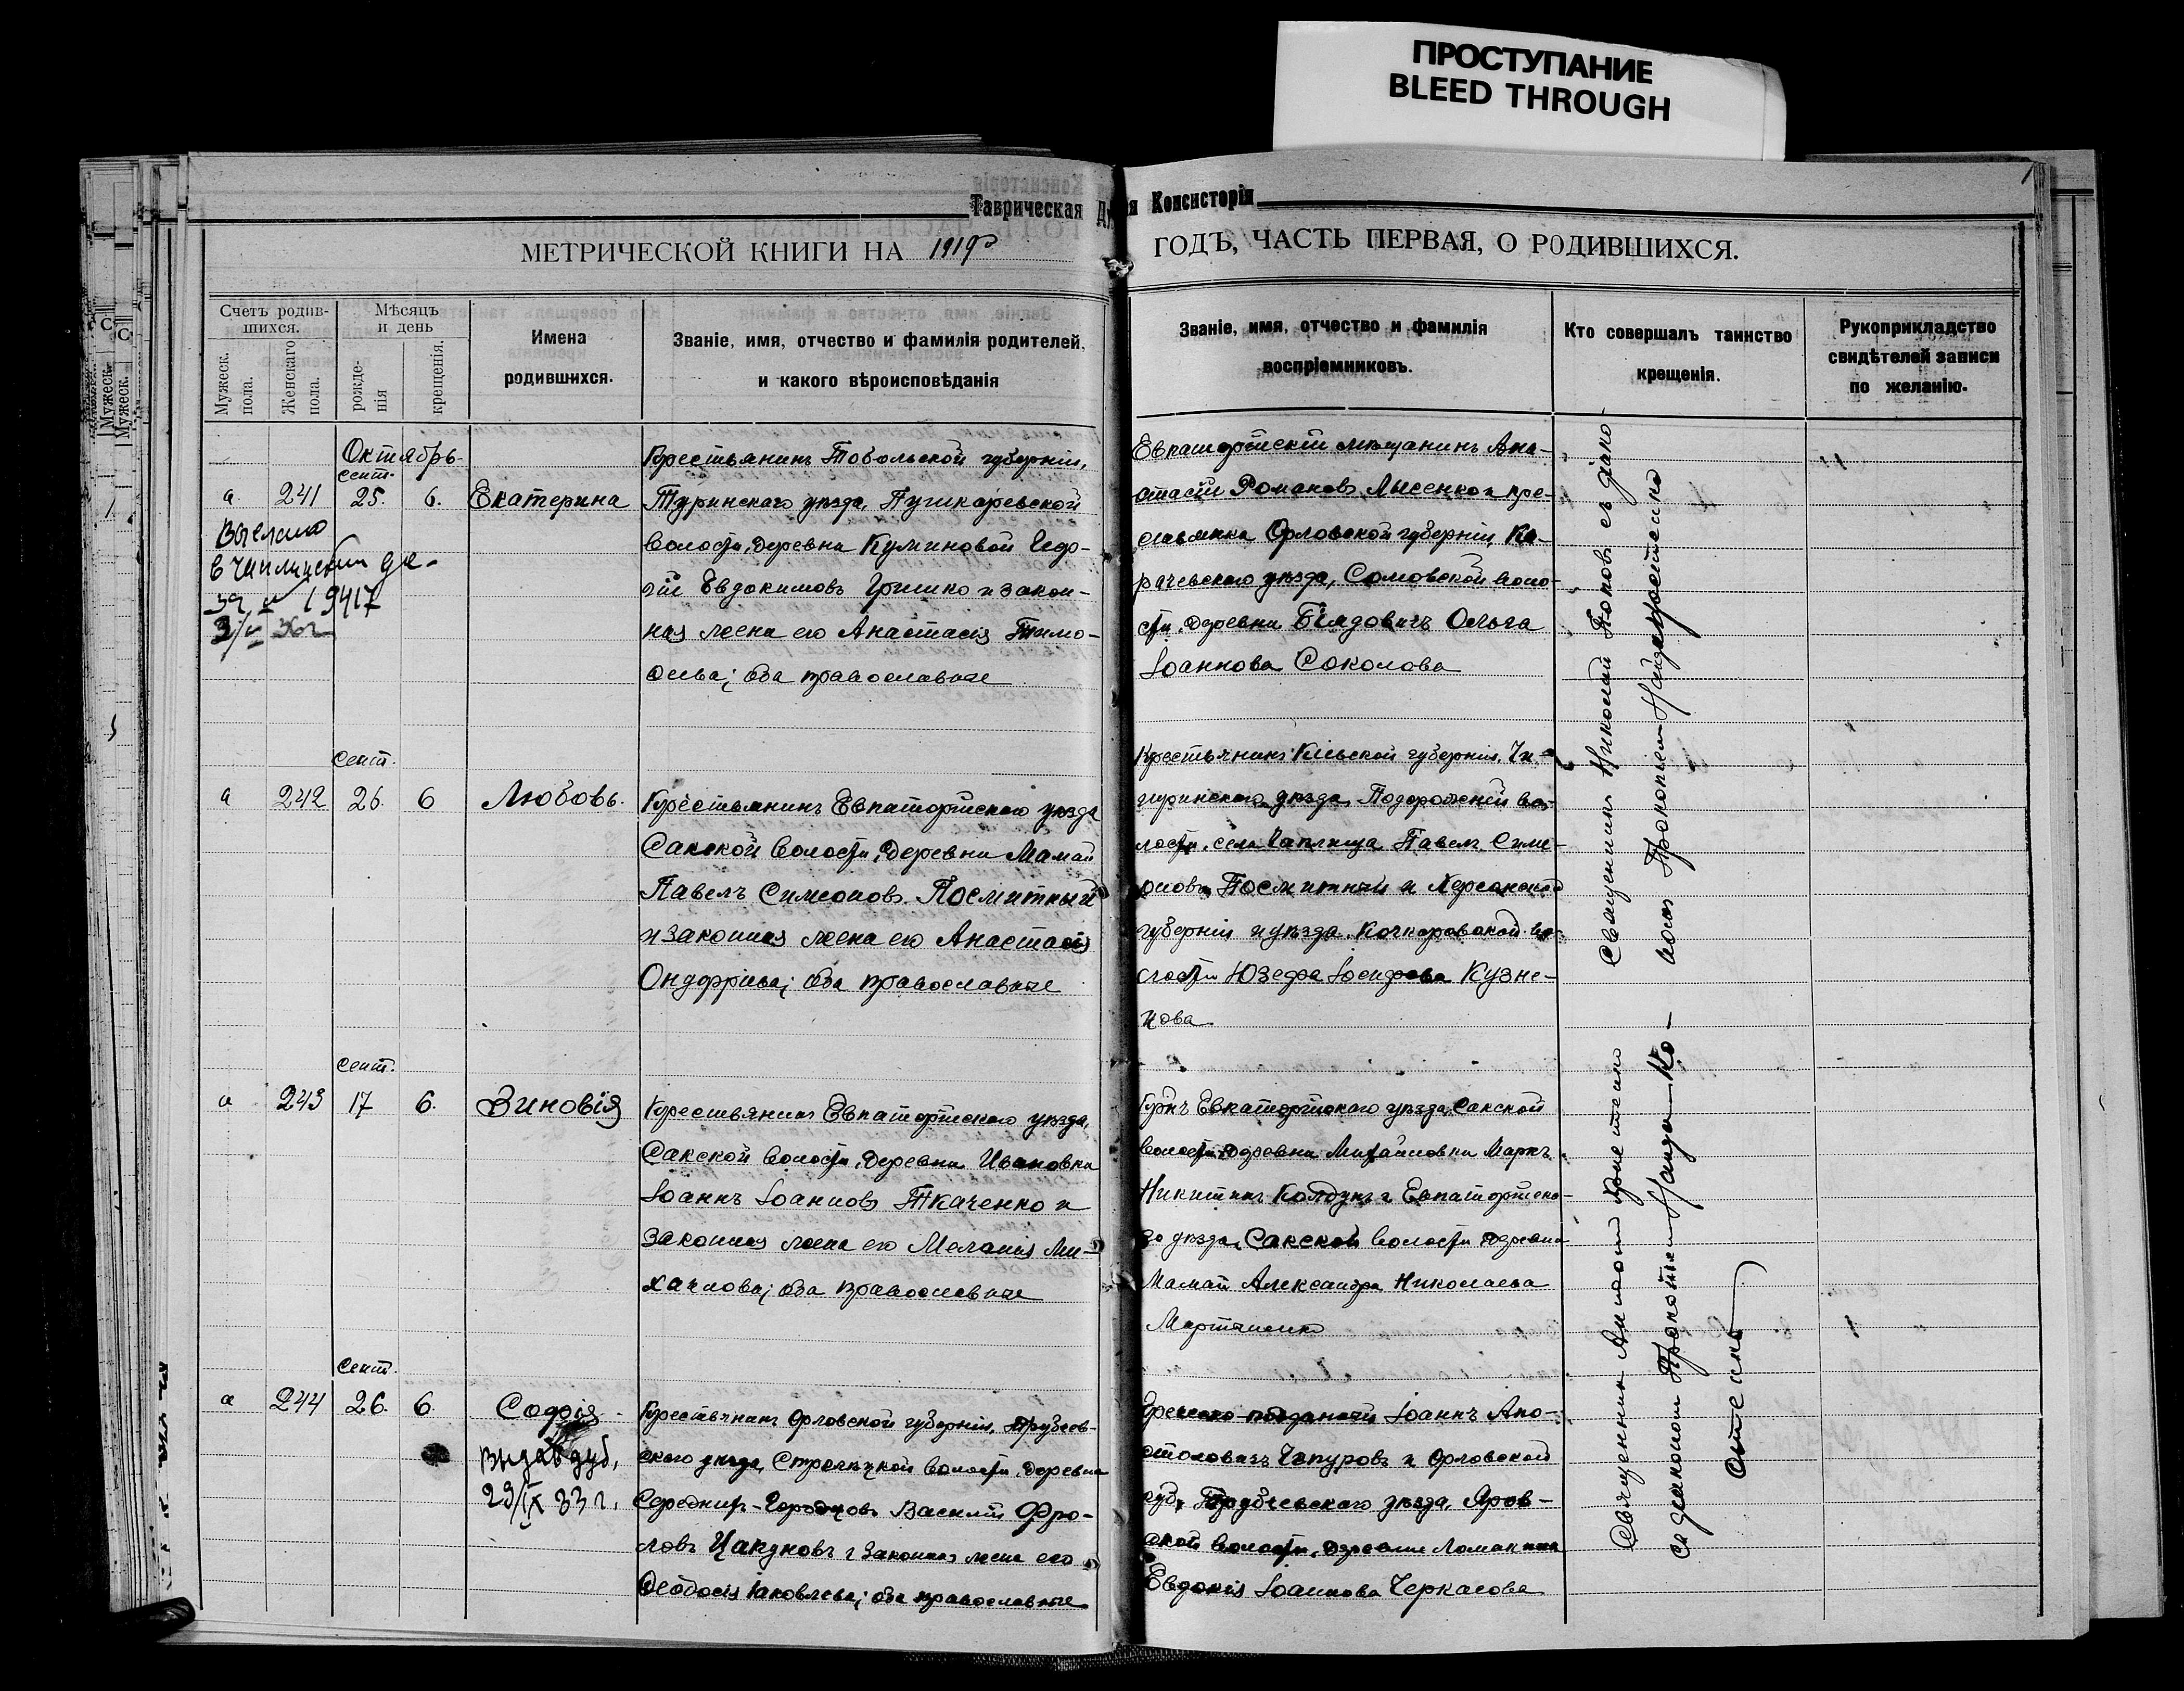 ПРОСТУПАНИЕ
BLEED THROUGH
Таврическая
я Консисторія
МЕТРИЧЕСКОЙ КНИГИ НА 1919
ГОДЪ, ЧАСТЬ ПЕРВАЯ, О РОДИВШИХСЯ.
Счетъ родив-
шихся.
Мужеск.
пола.
Женскаго
пола.
Мѣсяцъ
и день
рожде-
нія
крещенія.
Имена
родившихся.
Званіе, имя, отчество и фамилія родителей,
и какого вѣроисповѣданія
Званіе, имя, отчество и фамилія
воспріемниковъ.
Кто совершалъ таинство
крещенія.
Рукоприкладство
свидѣтелей записи
по желанію.
Октябрь
сент.
а 241 25. 6. Екатерина
Крестьянинъ Тобольской губерніи,
Туринскаго уѣзда, Пушкаревской
волости, деревни Куминовой Геор-
гій Евдокимовъ Гришко и закон-
ная жена его Анастасія Тимо-
ѳеева; оба православные
Евпаторійскій мѣщанинъ Ана-
стасій Романовъ Лысенко и кре-
стьянка Орловской губерніи, Ка-
рачевскаго уѣзда, Сомовской воло-
сти, деревни Ольга
Іоаннова Соколова
сент.
а 242 26. 6 Любовь.
Крестьянинъ Евпаторійскаго уѣзда
Сакской волости, деревни Мамай
Павелъ Симеоновъ Посмитный
и законная жена его Анастасія
Онуфріева; оба православные
Крестьянинъ Кіевской губерніи, Чи-
гиринскаго уѣзда, Подорожней во-
лости, села Чаплища Павелъ Симе-
оновъ Посмитный и Херсонской
губерніи и уѣзда, во-
лости Юзефа Іосифова Кузне-
цова
сент.
а 243 17 6. Зиновія
Крестьянинъ Евпаторійскаго уѣзда,
Сакской волости, деревни Ивановки
Іоаннъ Іоанновъ Ткаченко и
законная жена его Меланія Ми-
хайлова; оба православные
Кр-нъ Евпаторійскаго уѣзда, Сакской
волости, деревни Михайловки Маркъ
Никитинъ Колдунъ и Евпаторійска-
го уѣзда, Сакской волости деревни
Мамай Александра Николаева
Мартыненко
сент.
а 244 26. 6. Софія
Выдав дуб,
29/IX 33 г.
Крестьянинъ Орловской губерніи, Трубчев-
скаго уѣзда, Стрелецкой волости, деревни
Василій Фро-
ловъ Цакуновъ и законная жена его
Ѳеодосія Іаковлева; оба православные
Греческо-подданный Іоаннъ Апо-
столовичъ Чапуровъ и Орловской
губ, Трубчевскаго уѣзда, Яров-
ской волости, деревни
Евдокія Іоаннова Черкасова
Священникъ Николай Поповъ съ діако-
номъ Прокопіемъ
Священникъ
съ діакономъ Прокопіемъ